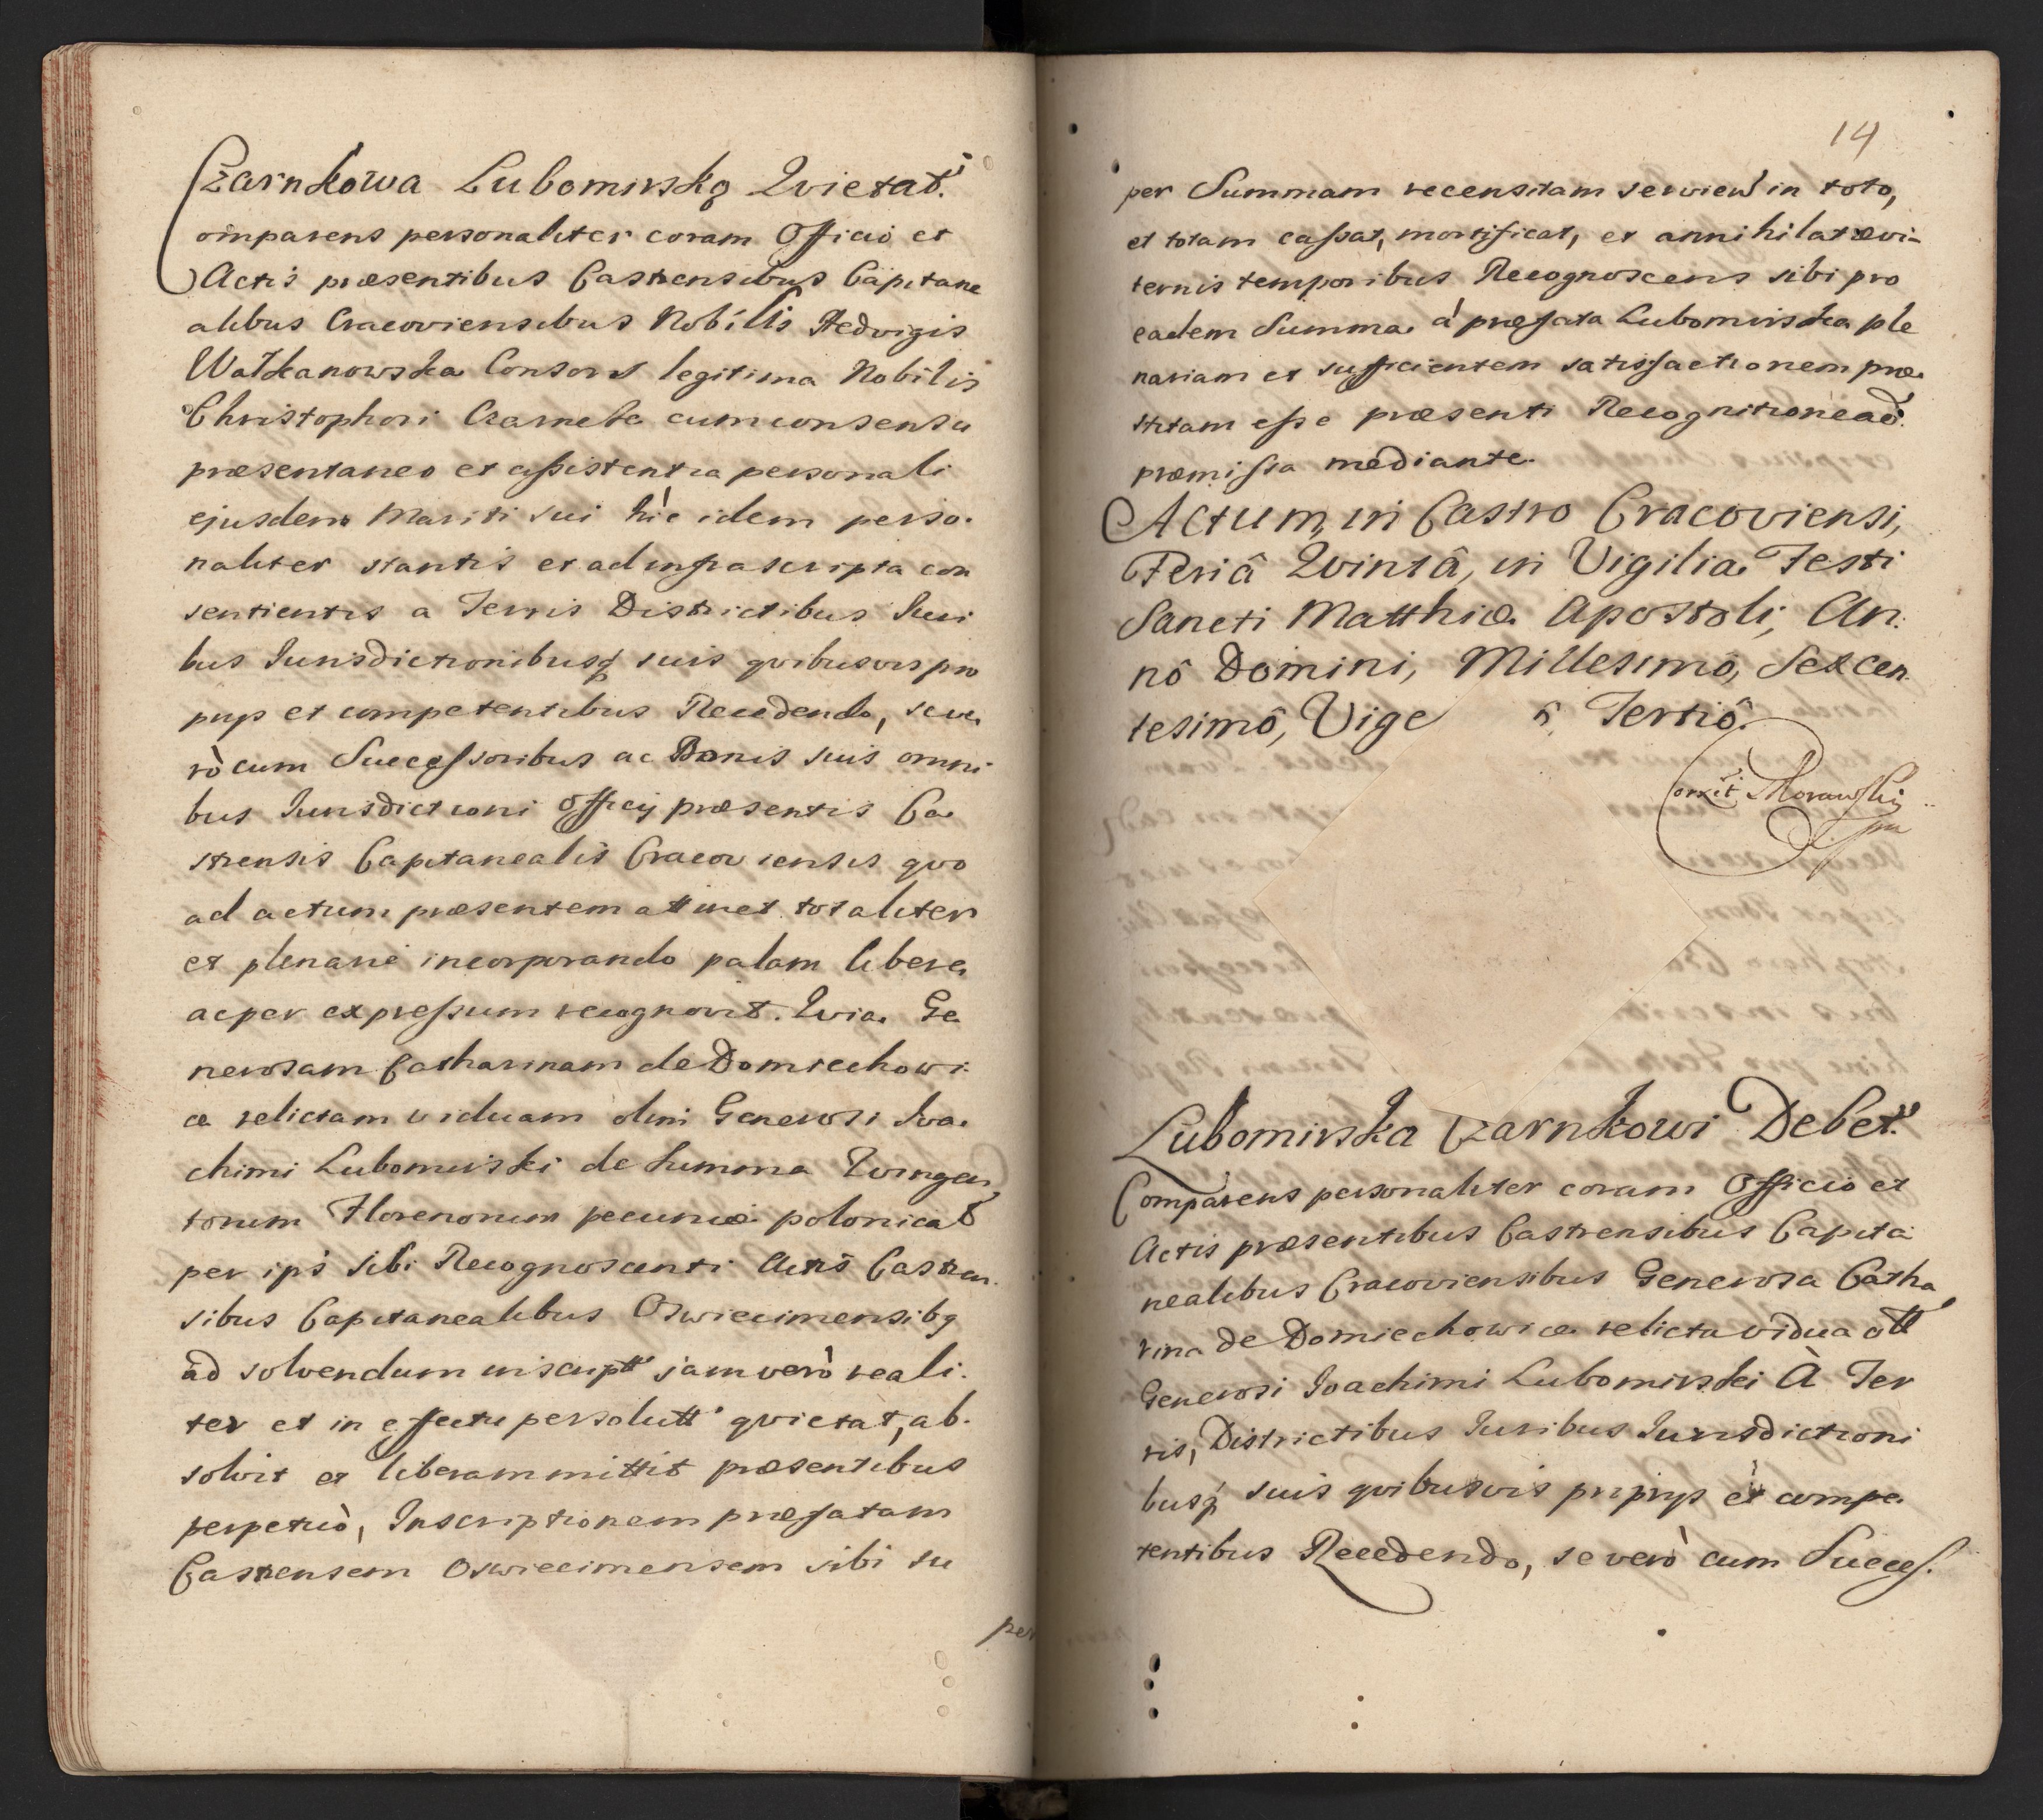 Czarnkowa Lubomirską Qvietat.
omparens personaliter coram Officio et
Actis præsentibus Castrensibus Capitane
alibus Cracoviensibus Nobilis Hedvigis
Watkanowska Consors legitima Nobilis
Christophori Czarnek cum consensu
præsentaneo et assistentia personali
ejusdem Mariti sui hic idem perso.
naliter stantis et ad infrascripta con
sentientis a Terris Districtibus Iuri
bus Iurisdictionibusq suis qvibusvis pro
prijs et competentibus Recedendo, seve
rò cum Successoribus ac Bonis suis omni
bus Iurisdictioni officij præsentis Ca
strensis Capitanealis Cracoviensis qvo
ad actum præsentem attinet totaliter
et plenariè incorporando palam libere
ac per expressum recognovit. Qvia Ge
nerosam Catharinam de Domiechowi
ce relictam viduam olim Generosi Ioa
chimi Lubomirski de summa Qvingen
torum Florenorum pecuniæ polonical
per ips sibi Recognoscenti Actis Castren.
sibus Capitanealibus Oswiecimensibq
ad solvendum inscriptt jam verò reali.
ter et in effectu persolutt qvietat, ab.
solvit et liberam mittit præsentibus
perpetuò, Inscriptionem præfatam
Castrensem Oswiecimensem sibi su
per
14
per Summam recensitam servien in toto,
et totam cassat, mortificat, et annihilat ævi-
ternis temporibus Recognoscens sibi pro
eadem Summa à præfata Lubomirska ple
nariam et sufficientem satisfactionem præ
stitam esse præsenti Recognitione ad
præmissa mediante.
Actum in Castro Cracoviensi,
Feriâ Qvintâ, in Vigilia Festi
Sancti Matthiæ Apostoli, An:
nô Domini, Millesimô, Sexcen.
tesimô, Vige ô, Tertiô.
Morawski
mp
Lubomirska Czarnkowi Debet.
Comparens personaliter coram Officio et
Actis præsentibus Castrensibus Capita
nealibus Cracoviensibus Generosa Catha
rina de Domiechowice relicta vidua ott
Generosi Ioachimi Lubomirski À Ter
ris, Districtibus Iuribus Iurisdictioni
busq suis qvibusvis proprijs et compe
tentibus Recedendo, se verò cum Succes.